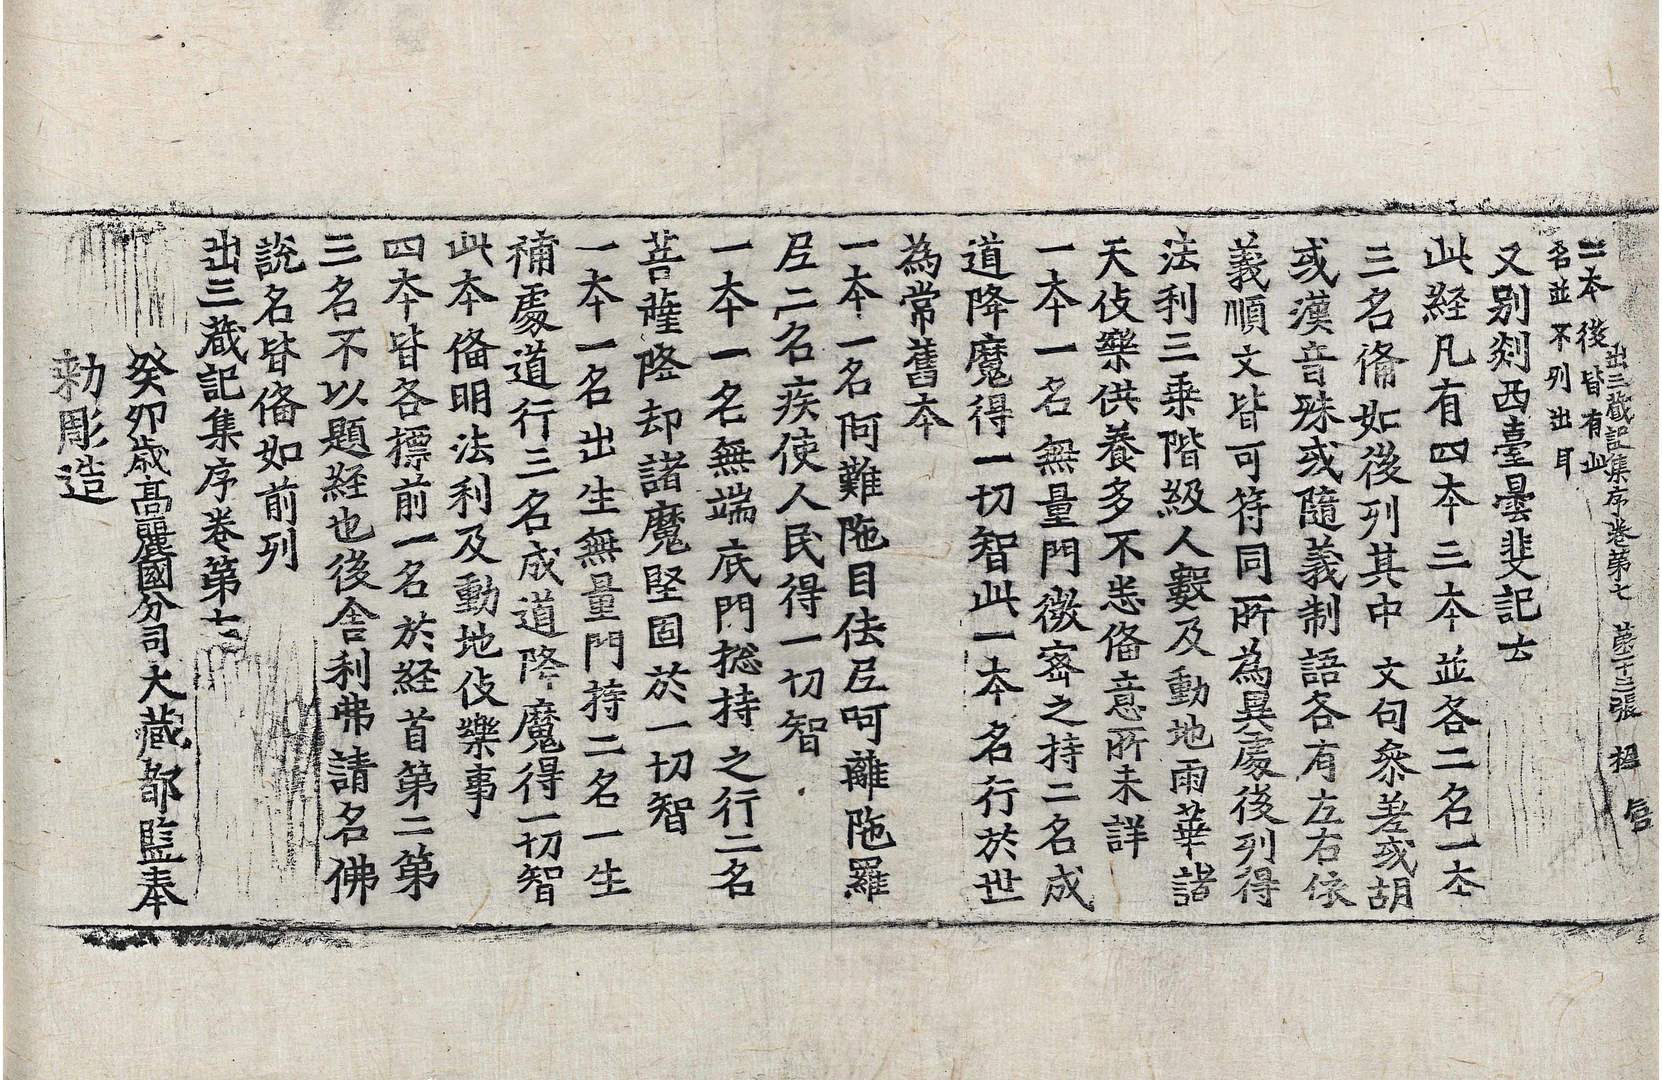 出三藏記集序卷第七 第二十三張
二本後皆有此
名並不列出耳
又別剡西臺曇斐記云
此経凡有四本三本並各二名一本
三名備如後列其中文句叅差或胡
或漢音殊或隨義制語各有左右依
義順文皆可符同所為異處後列得
法利三乗階級人數及動地雨華諸
天伎樂供養多不悉俻意所未詳
一本一名無量門微宻之持二名成
道降魔得一切智此一本名行於世
為常舊本
一本一名阿難陁目佉尼呵離陁羅
尼二名疾使人民得一切智
一本一名無端底門捴持之行二名
菩薩降却諸魔堅固於一切智
一本一名出生無量門持二名一生
補處道行三名成道降魔得一切智
此本俻明法利及動地伎樂事
四本皆各標前一名於経首第二第
三名不以題経也後舎利弗請名佛
說名皆俻如前列
出三藏記集序卷第七
癸卯歳高麗國分司大藏都監奉
勑彫造